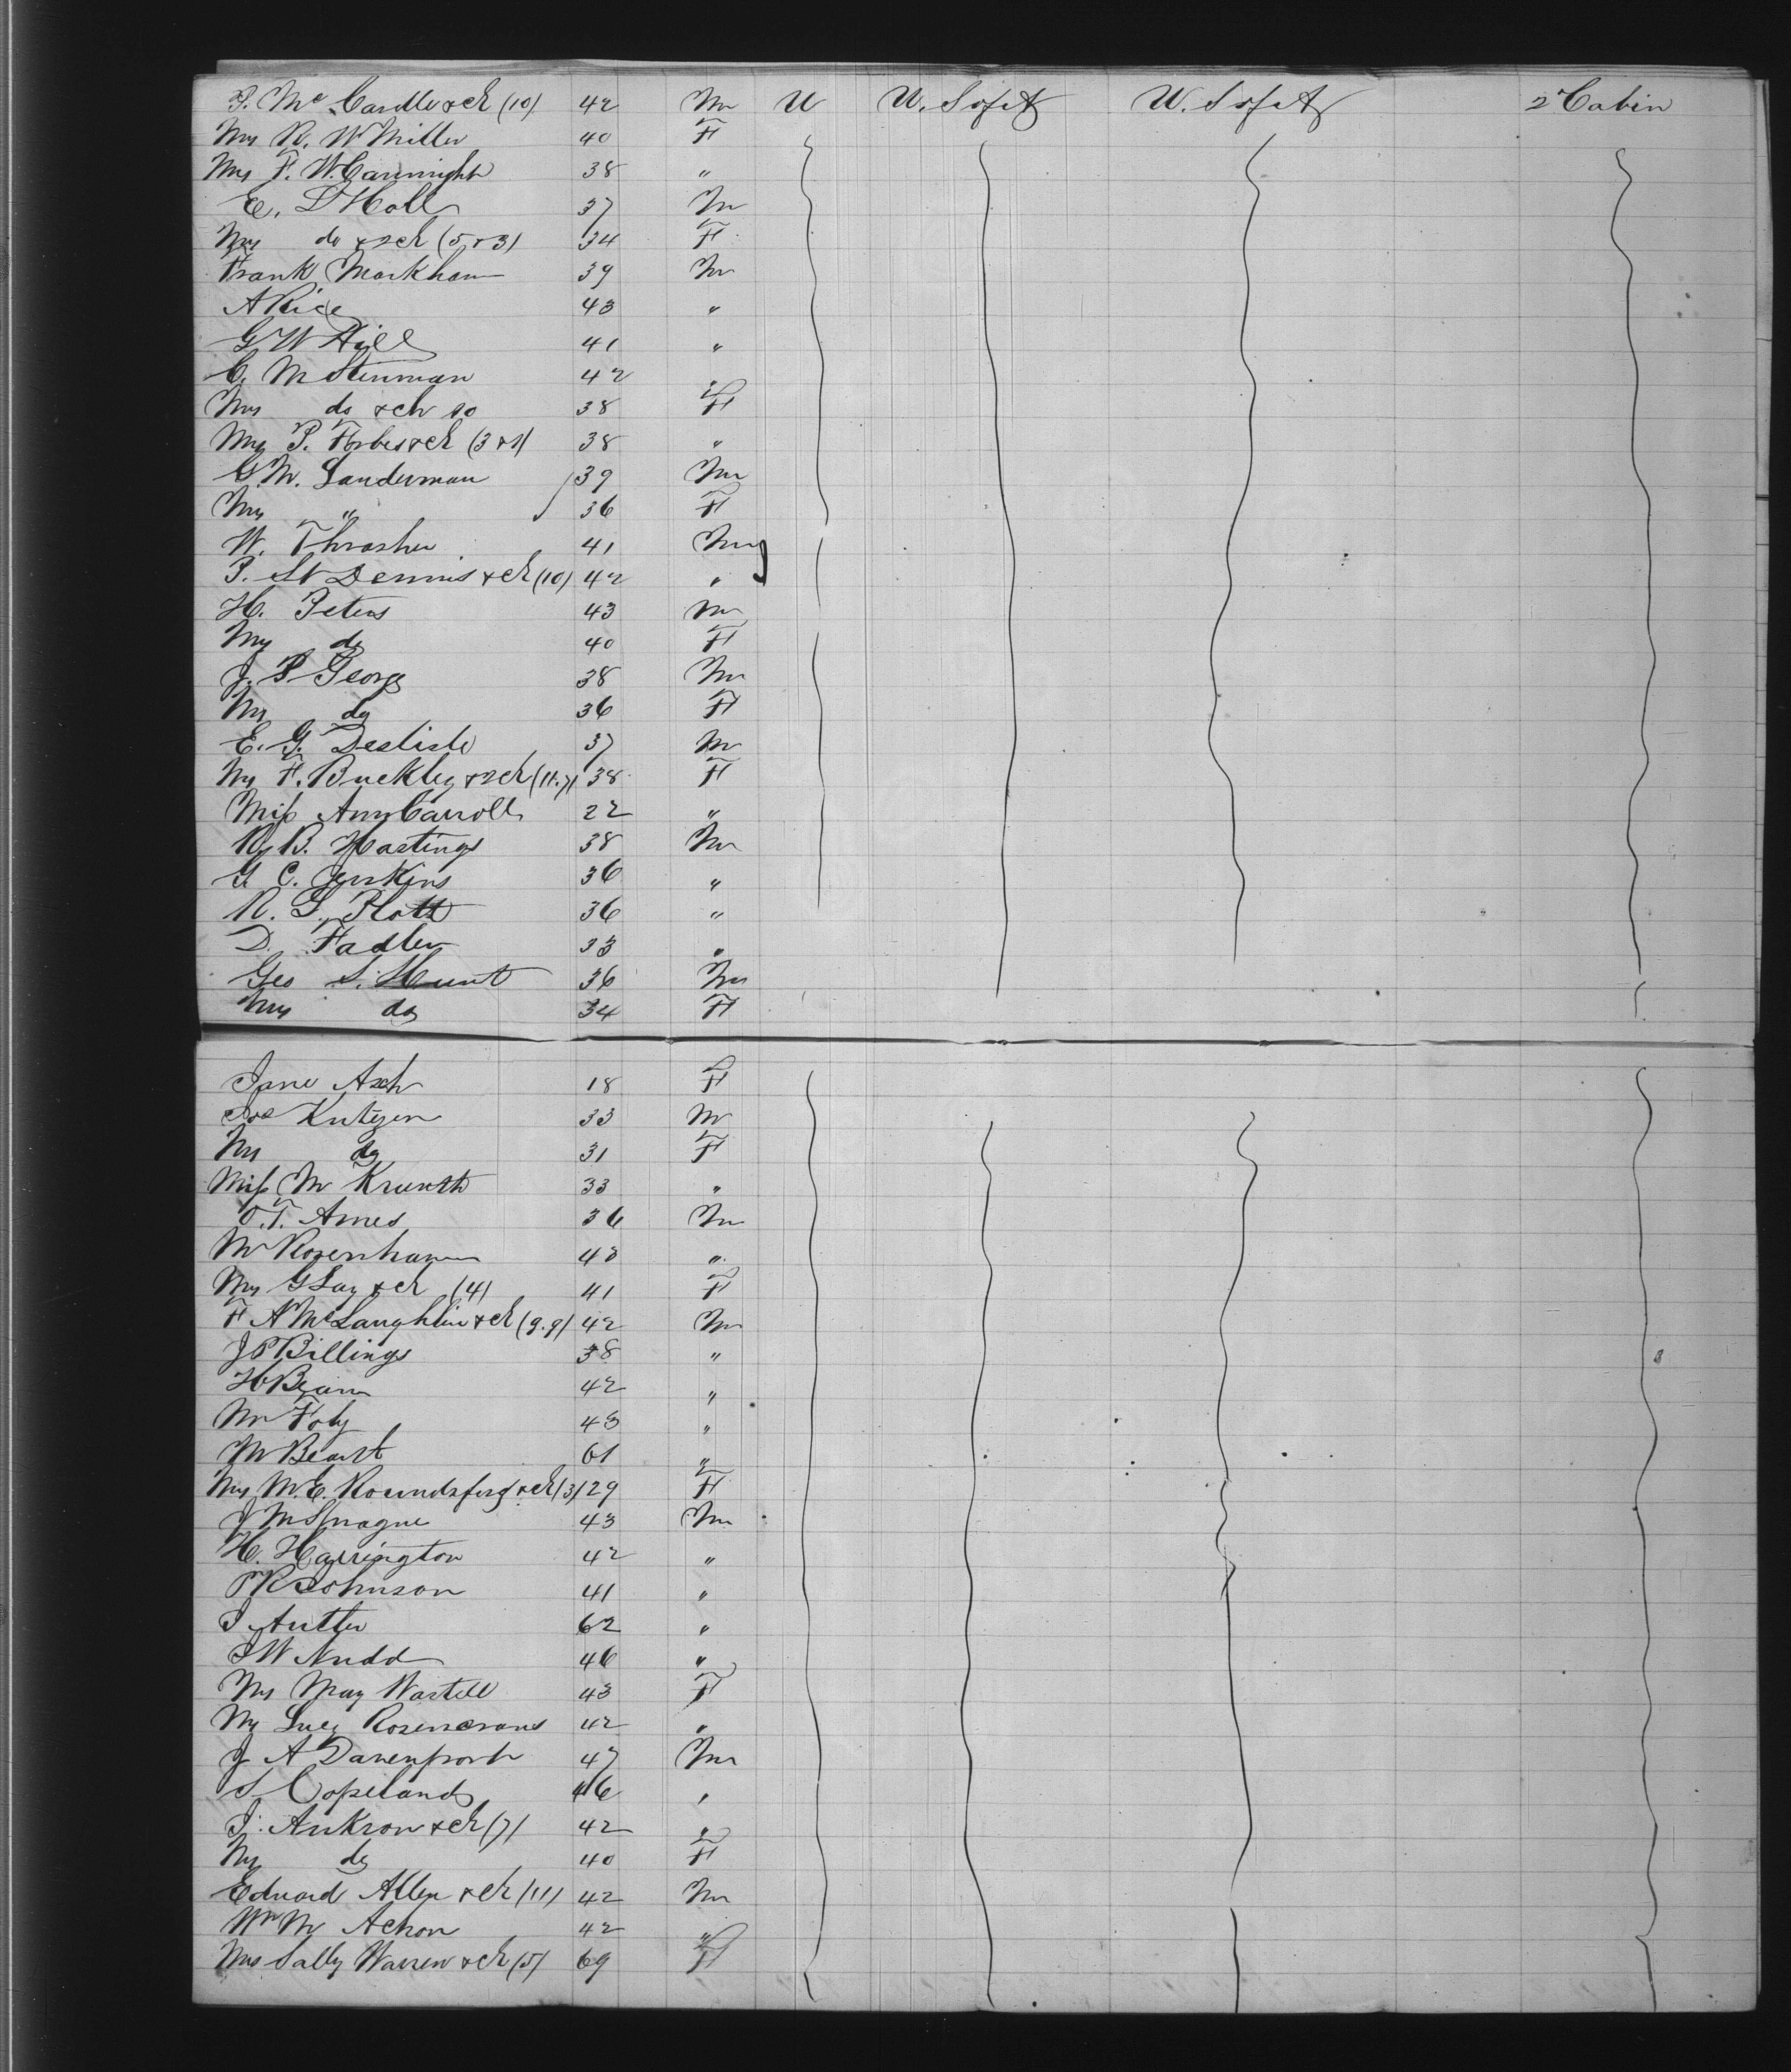 P. McCardle & ch (10) 42 M U U. S of A U. S of A 2 Cabin
Mrs R. W Miller 40 F
Mrs F. W. Cartwright 38 "
E. L Hall 37 M
Mrs do & 2 ch (5 & 3) 34 F
Frank Markham 39 M
A Rice 43 "
G W Hill 41 "
C. M Stenman 42 "
Mrs do & ch 10 38 F
Mrs P. Forbes & ch (3 & 1) 38 "
G. M. Sanderman 39 M
Mrs " 36 F
W. Thrasher 41 M
P. St Dennis & ch (10) 42 "
H. Peters 43 M
Mrs do 40 F
J. P George 38 M
Mrs do 36 F
E. G. Deslisle 37 M
Mrs F. Buckley & 2 ch (11.7) 38 F
Miss Amy Carroll 22 "
B. Hastings 38 M
G C. Jenkins 36 "
R. S. Platt 36 "
D. Fadler 33 "
Geo S. Hunt 36 M
Mrs do 34 F
Jane Asch 18 F
Jos Kutzen 33 M
Mrs do 31 F
Miss M 33 "
O. T. Ames 36 M
M Rosenham 43 "
Mrs G Lay & ch (4) 41 F
F A McLaughlin & ch (9.9) 42 M
J P Billings 38 "
H Beam 42 "
M Foly 43 "
M Beart 61 "
Mrs M. E. Roundsford & ch (3) 29 F
J M Sprague 43 M
H. Harrington 42 "
P K Johnson 41 "
J Antler 62 "
J W Nudd 46 "
Mrs May Wastell 43 F
Mrs Lucy Rosencrans 42 "
J A Davenport 47 M
S. Copeland 46 "
J. Ankron & ch (7) 42 "
Mrs do 40 F
Edward Allen & ch (11) 42 M
Wm M Achon 42 "
Mrs Sally Warren & ch (5) 69 F